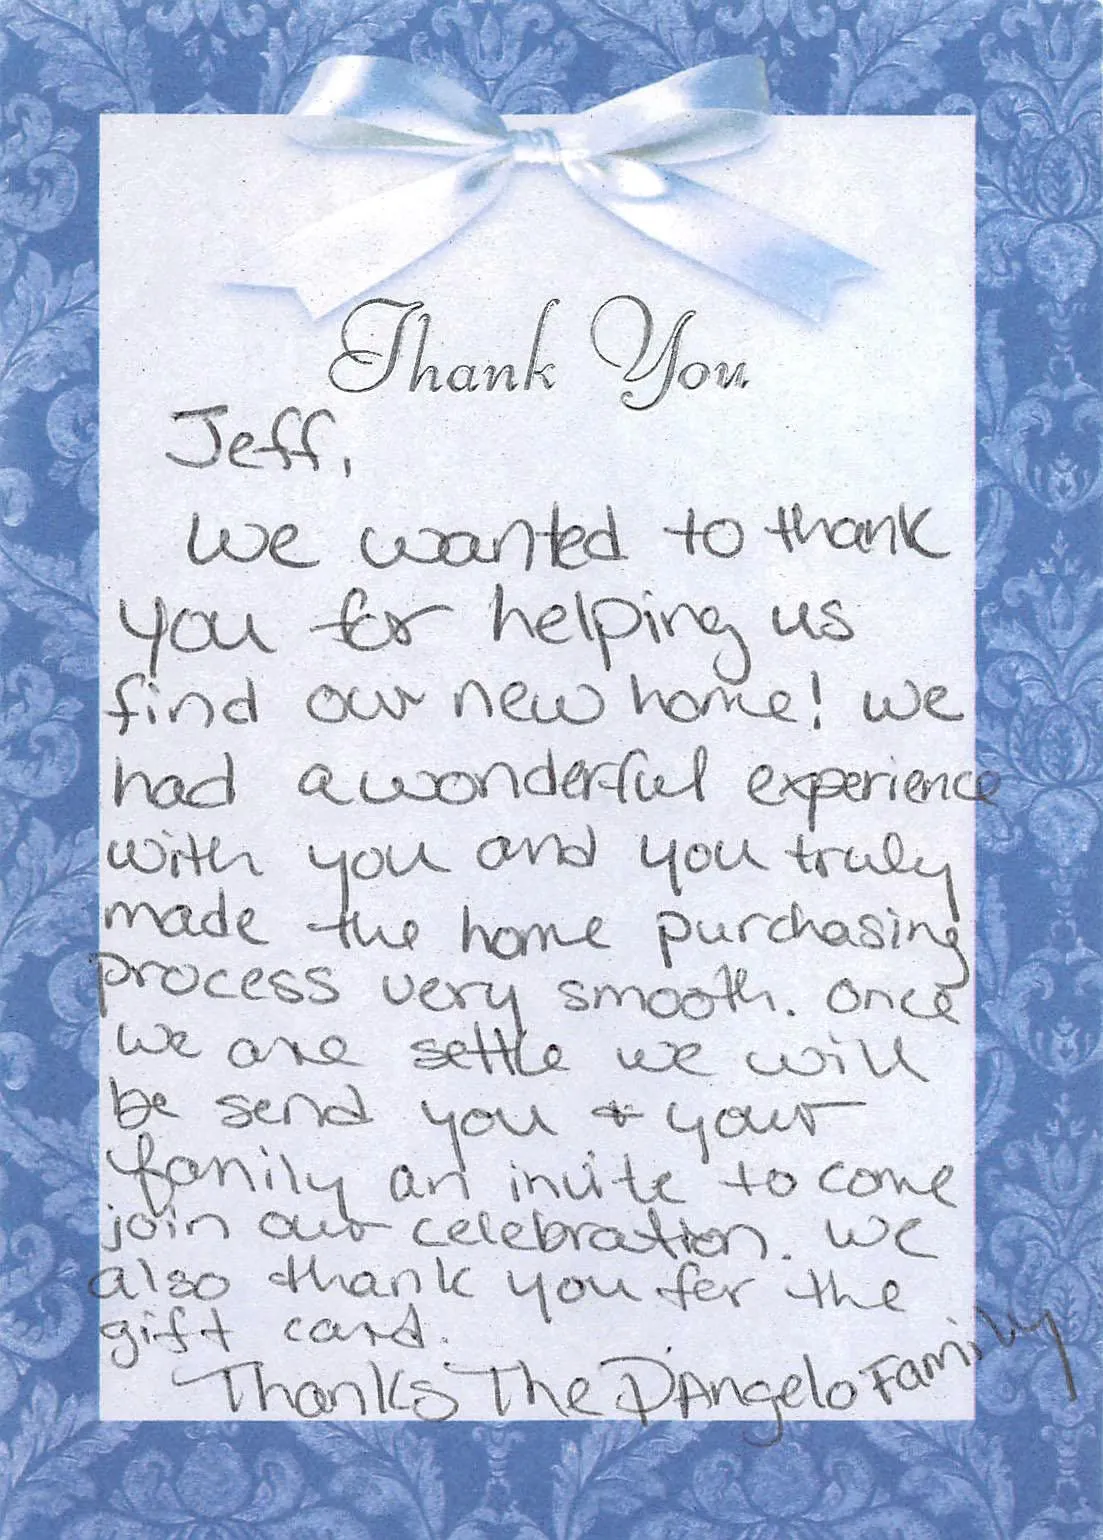 Thank You
Jeff,
We wanted to thank
you for helping us
find our new home! We
had a wonderful experience
with you and you truly
made the home purchasing
process very smooth. Once
we are settle we will
be send you + your
family an invite to come
join our celebration. We
also thank you for the
gift card.
Thanks The D'Angelo Family